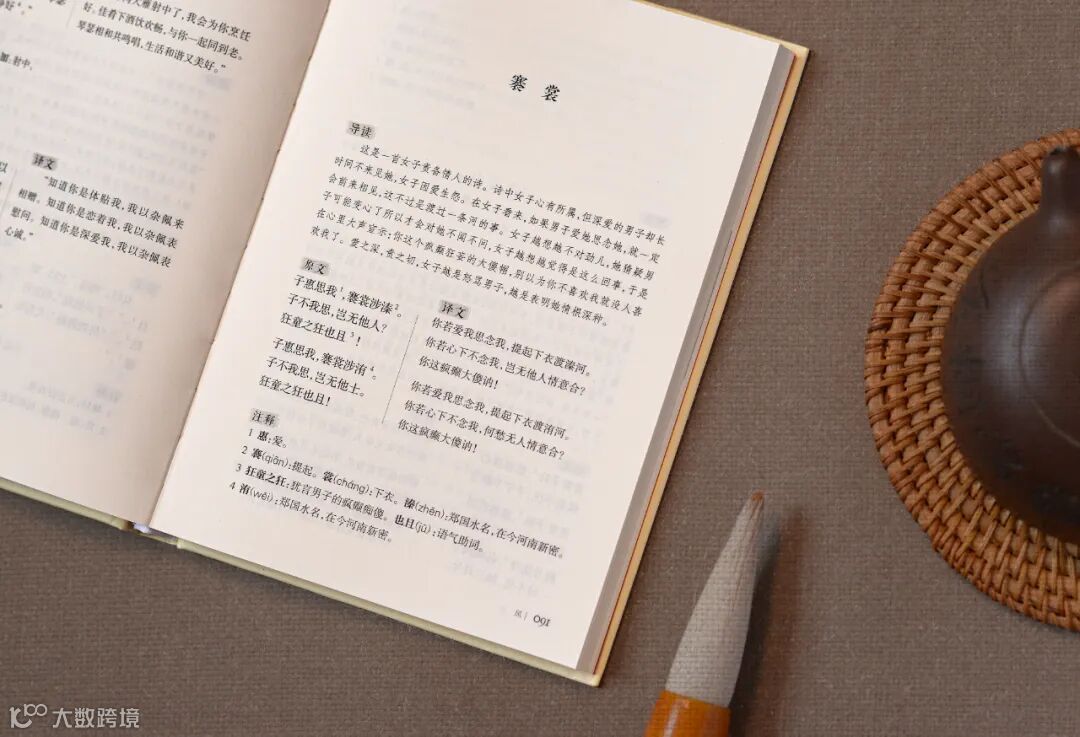 我会为你烹饪
好。佳肴下酒饮欢畅，与你一起同到老。
琴瑟相和共鸣唱，生活和谐又美好。”
射中。
译文
“知道你是体贴我，我以杂佩来
相赠。知道你是恋着我，我以杂佩表
慰问。知道你是深爱我，我以杂佩表
心诚。”
褰 裳
导读
这是一首女子责备情人的诗。诗中女子心有所属，但深爱的男子却长
时间不来见她，女子因爱生怨。在女子看来，如果男子爱她思念她，就一定
会前来相见，这不过是渡过一条河的事。女子越想越不对劲儿，她猜疑男
子可能变心了所以才会对她不闻不问，女子越想越觉得是这么回事，于是
在心里大声宣示：你这个疯癫狂妄的大傻帽，别以为你不喜欢我就没人喜
欢我了。爱之深，责之切，女子越是怒骂男子，越是表明她情根深种。
原文
子惠思我¹，褰裳涉溱²。
子不我思，岂无他人？
狂童之狂也且³！
子惠思我，褰裳涉洧⁴。
子不我思，岂无他士。
狂童之狂也且！
译文
你若爱我思念我，提起下衣渡溱河。
你若心下不念我，岂无他人情意合？
你这疯癫大傻讷！
你若爱我思念我，提起下衣渡洧河。
你若心下不念我，何愁无人情意合？
你这疯癫大傻讷！
注释
1 惠：爱。
2 褰(qiān)：提起。裳(cháng)：下衣。溱(zhēn)：郑国水名，在今河南新密。
3 狂童之狂：犹言男子的疯癫痴傻。也且(jū)：语气助词。
4 洧(wěi)：郑国水名，在今河南新密。
风 | 091
大数跨境